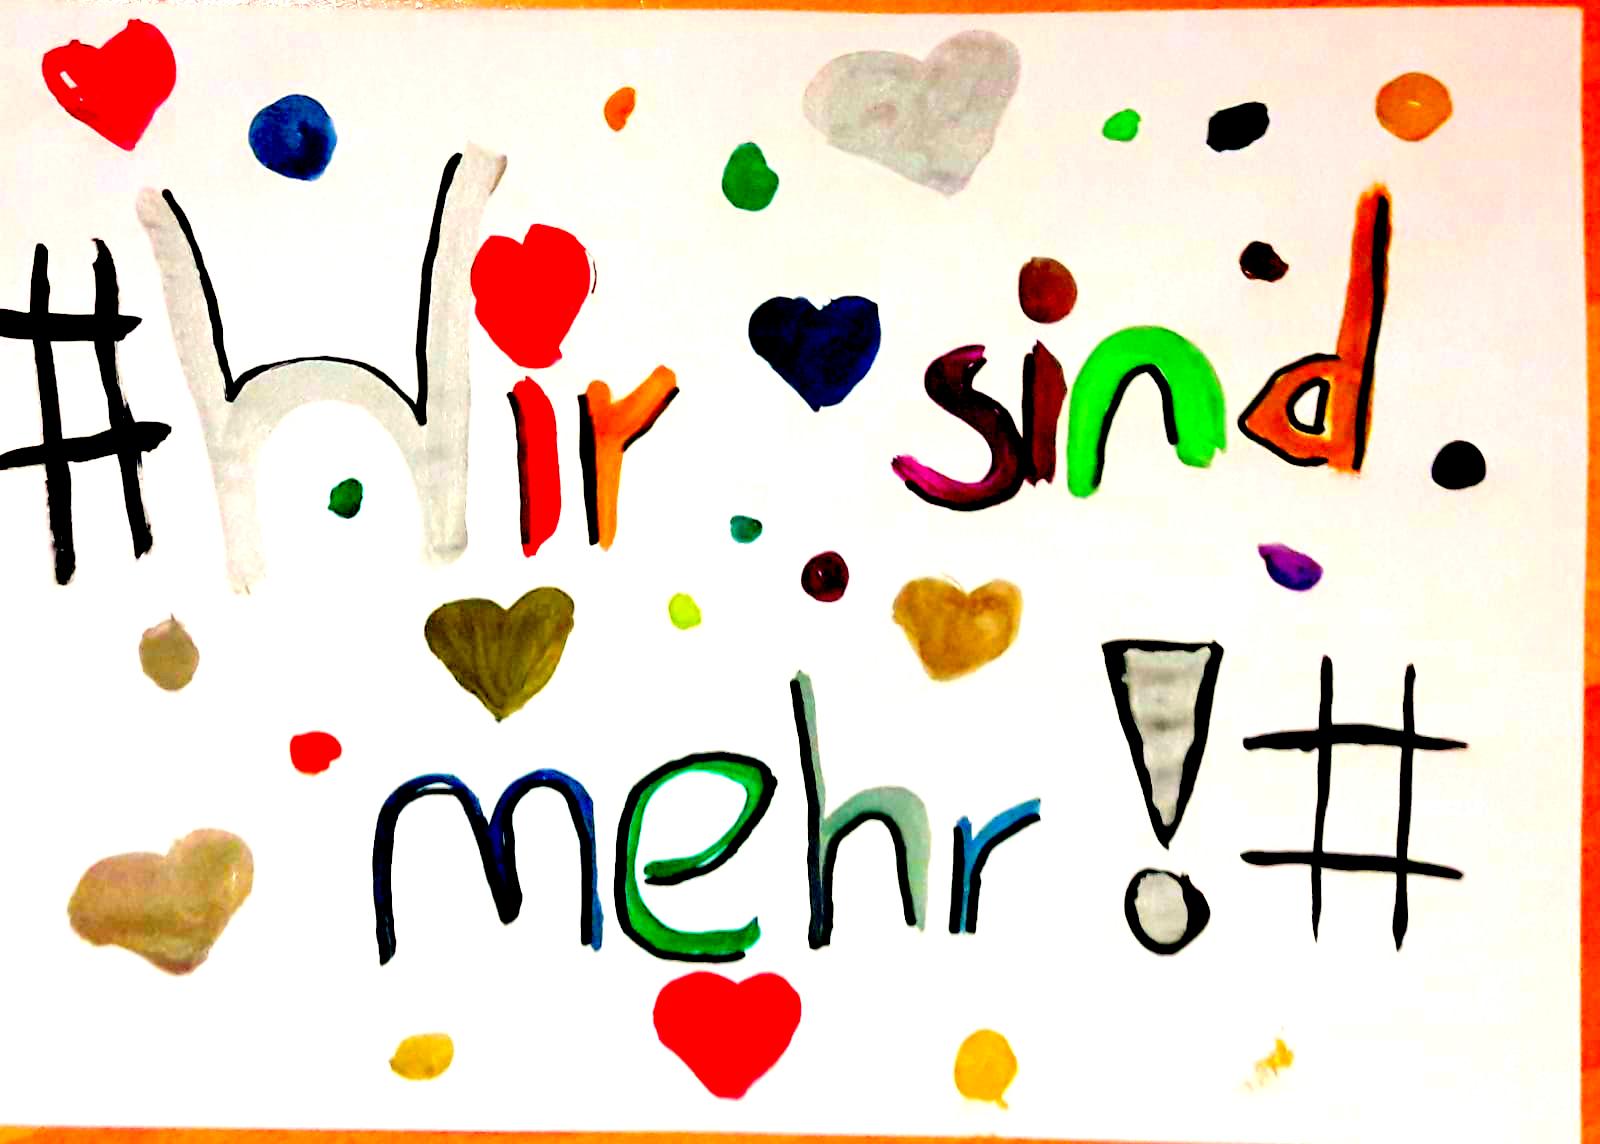 #Wir sind
mehr!#